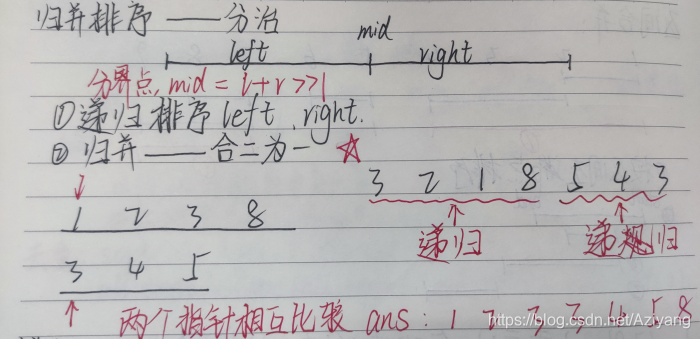 归并排序 —— 分治
left mid right
分界点, mid = l+r>>1
①递归排序left、right.
②归并——合二为一 ☆
3 2 1 8 5 4 3
1 2 3 8
递归 递归
3 4 5
两个指针相互比较 ans: 1 2 3 3 4 5 8
https://blog.csdn.net/Aziyang